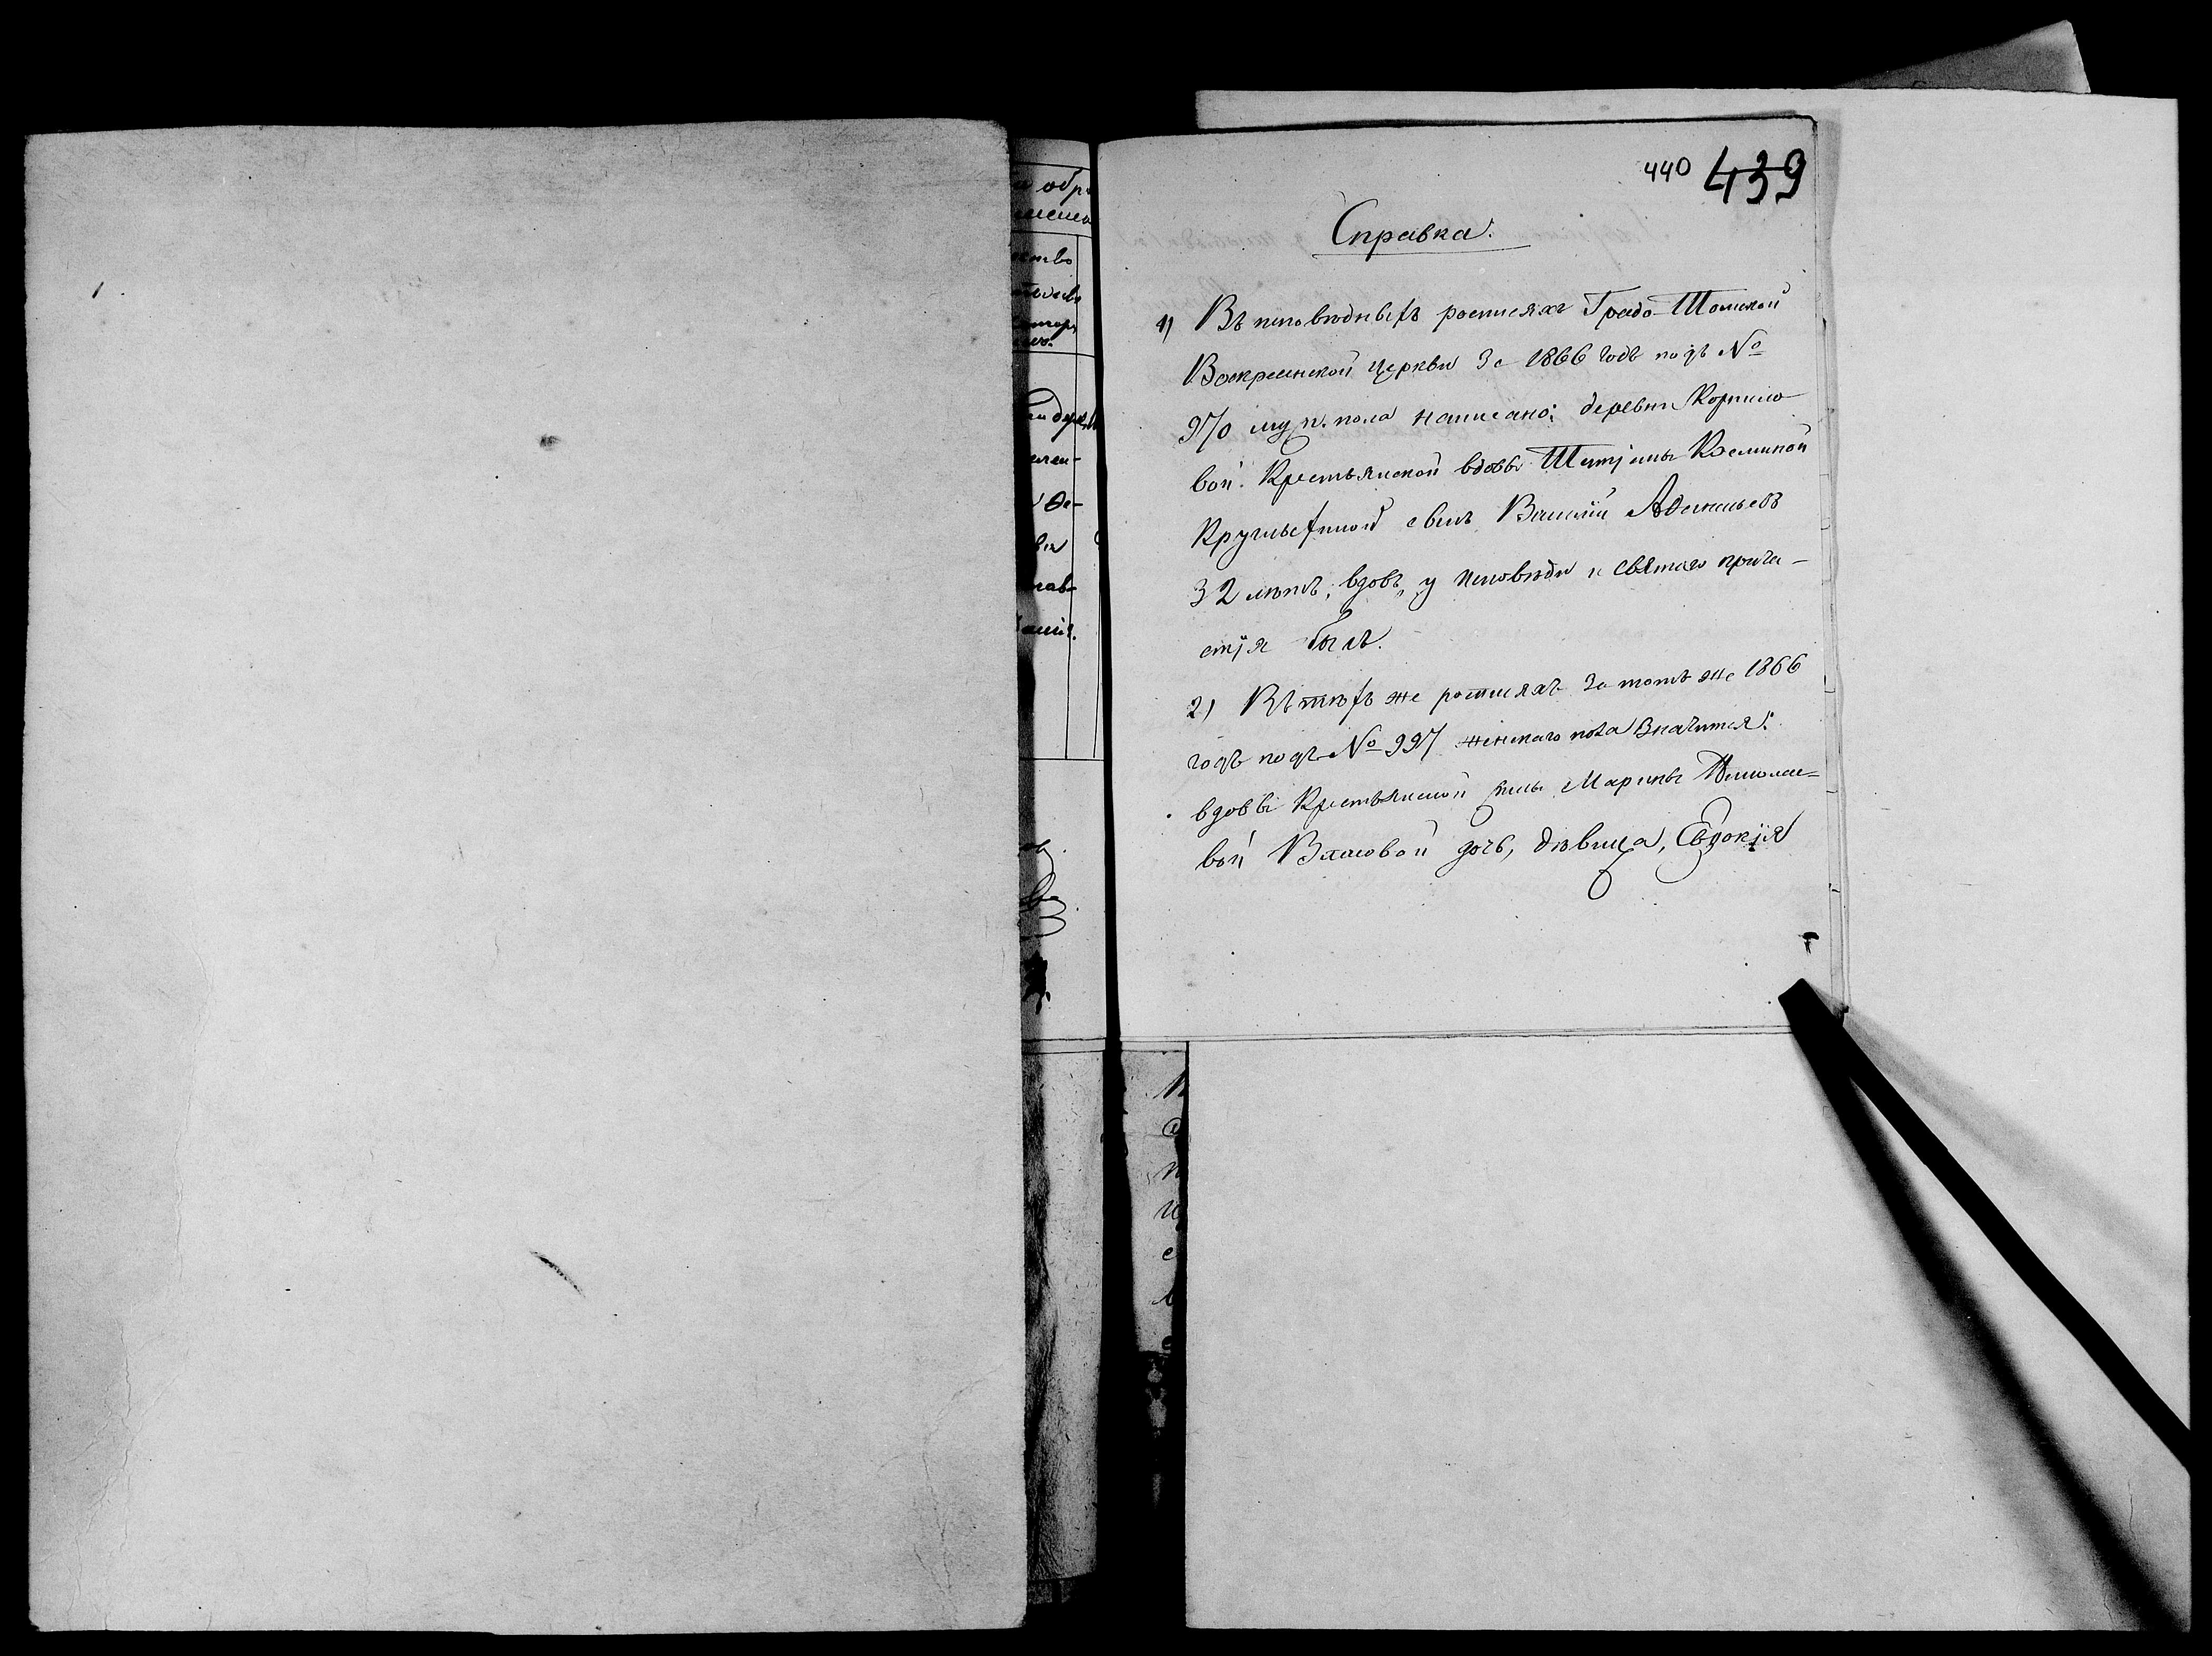 440 439
Справка.
1) Въ исповѣдныхъ росписяхъ Градо-Томской
Воскресенской церкви за 1866 годъ подъ №
970 муж. пола написано: деревни Корнило-
вой. Крестьянской вдовы Татіаны Козминой
сынъ Василій
32 лѣтъ, вдовъ, у исповѣди и святаго прича-
стія былъ.
2) Въ тѣхъ же росписяхъ за тотъ же 1866
годъ подъ № 997 женскаго пола значится:
вдовы Крестьянской жены Марины Николае-
вой Власовой дочь, дѣвица, Евдокія